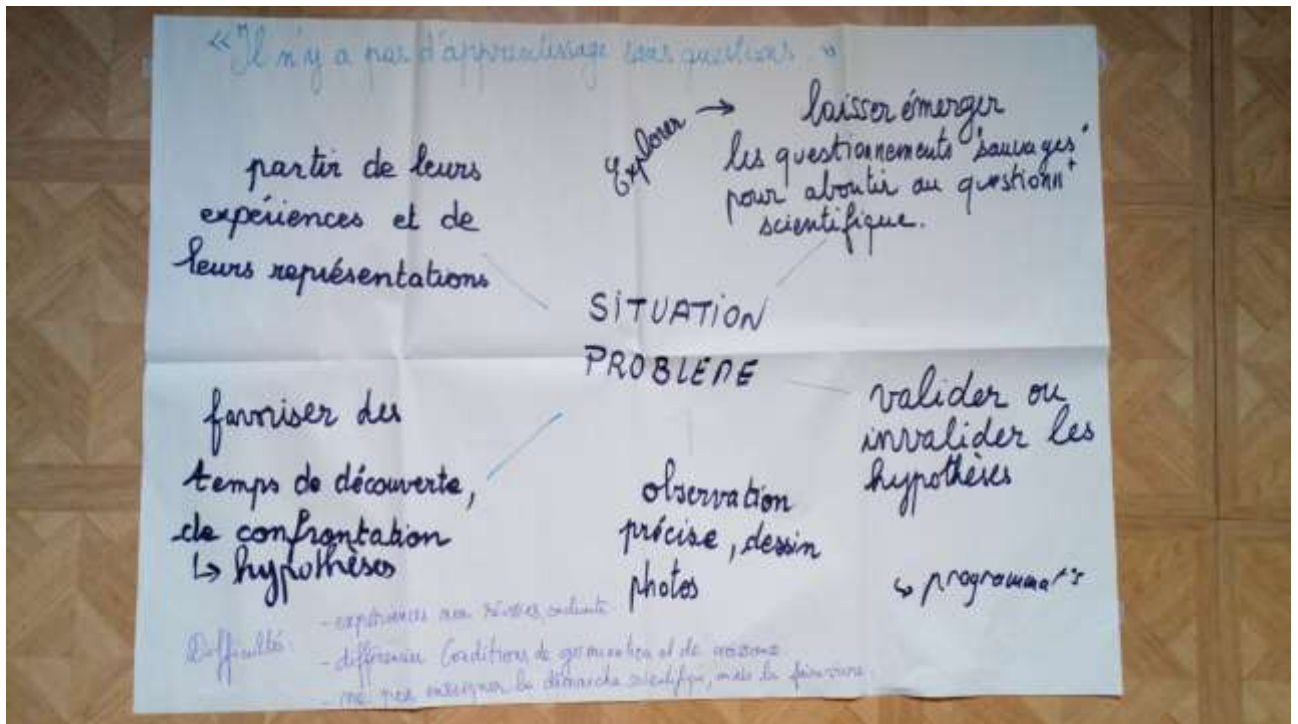 « Il n'y a pas d'apprentissage sans questions. »
partir de leurs
expériences et de
leurs représentations
Explorer →
laisser émerger
les questionnements "sauvages"
pour aboutir au questionnt
scientifique.
SITUATION
PROBLEME
favoriser des
temps de découverte,
de confrontation
↳ hypothèses
observation
précise, dessin
photos
valider ou
invalider les
hypothèses
↳ programmat°s
Difficultés:
- expériences non
- différencier Conditions de germination et de croissance
- ne pas enseigner la démarche scientifique, mais la faire vivre.